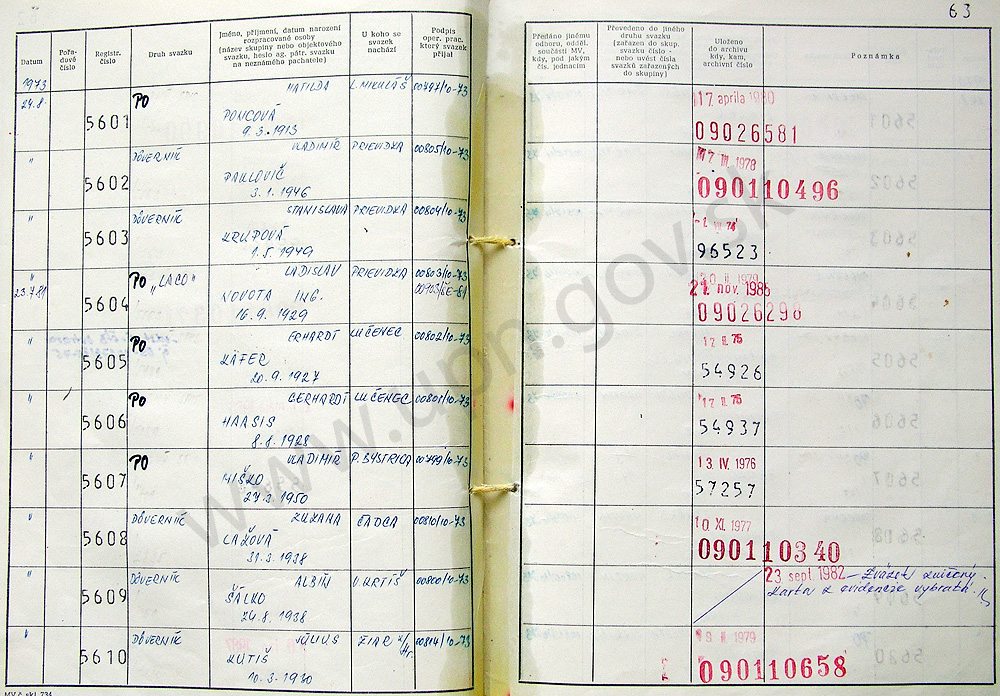 63
Datum
Pořadové číslo
Registr. číslo
Druh svazku
Jméno, příjmení, datum narození rozpracované osoby (název skupiny nebo objektového svazku, heslo ag. pátr. svazku na neznámého pachatele)
U koho se svazek nachází
Podpis oper. prac. který svazek přijal
Předáno jinému odboru, odděl. součásti MV, kdy, pod jakým čís. jednacím
Převedeno do jiného druhu svazku (zařazen do skup. svazku číslo - nebo uvést čísla svazků zařazených do skupiny)
Uloženo do archivu kdy, kam, archivní číslo
Poznámka
1973
24.8. 5601 PO MATILDA L. MIKULÁŠ 00797/10-73 17. apríla 1980
PONCOVÁ
9.3.1913 09026581
" 5602 DÔVERNÍK VLADIMÍR PRIEVIDZA 00805/10-73 1978
PAVLOVIČ
3.1.1946 090110496
" 5603 DÔVERNÍK STANISLAVA PRIEVIDZA 00804/10-73
KRUPOVÁ
1.5.1949 96523
" PO "LACO" LADISLAV PRIEVIDZA 00803/10-73
23.7.81 5604 NOVOTA ING. 21. nov. 1985
16.9.1929 09026298
" 5605 PO ERHARDT LUČENEC 00802/10-73 12 II. 75
KÁFER
20.9.1927 54926
" 5606 PO GERHARDT LUČENEC 00801/10-73 12 II. 75
HAASIS
8.8.1928 54937
" 5607 PO VLADIMÍR P. BYSTRICA 00799/10-73 13. IV. 1976
MIŠKO
27.3.1950 57257
" 5608 DÔVERNÍK ZUZANA ČADCA 00810/10-73 10. XI. 1977
LAŽOVÁ
31.3.1938 090110340
" 5609 DÔVERNÍK ALBÍN V. KRTÍŠ 00800/10-73 23. sept. 1982 – Zväzok zničený.
ŠALKO Karta z evidencie vybratá.
24.8.1938
" 5610 DÔVERNÍK JÚLIUS ŽIAR n/Hr. 00814/10-73 II 1979
KUTIŠ
10.3.1930 090110658
MV č. skl. 734
www.upn.gov.sk